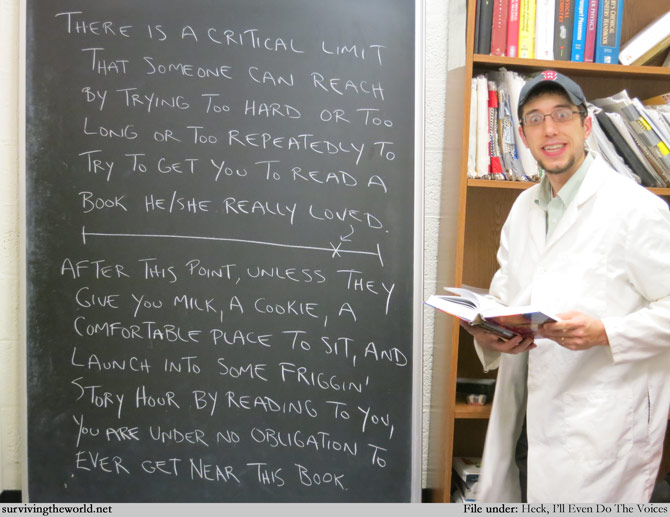 THERE IS A CRITICAL LIMIT
THAT SOMEONE CAN REACH
BY TRYING TOO HARD OR TOO
LONG OR TOO REPEATEDLY TO
TRY TO GET YOU TO READ A
BOOK HE/SHE REALLY LOVED.
AFTER THIS POINT, UNLESS THEY
GIVE YOU MILK, A COOKIE, A
COMFORTABLE PLACE TO SIT, AND
LAUNCH INTO SOME FRIGGIN'
STORY HOUR BY READING TO YOU,
YOU ARE UNDER NO OBLIGATION TO
EVER GET NEAR THIS BOOK.
survivingtheworld.net
File under: Heck, I'll Even Do The Voices